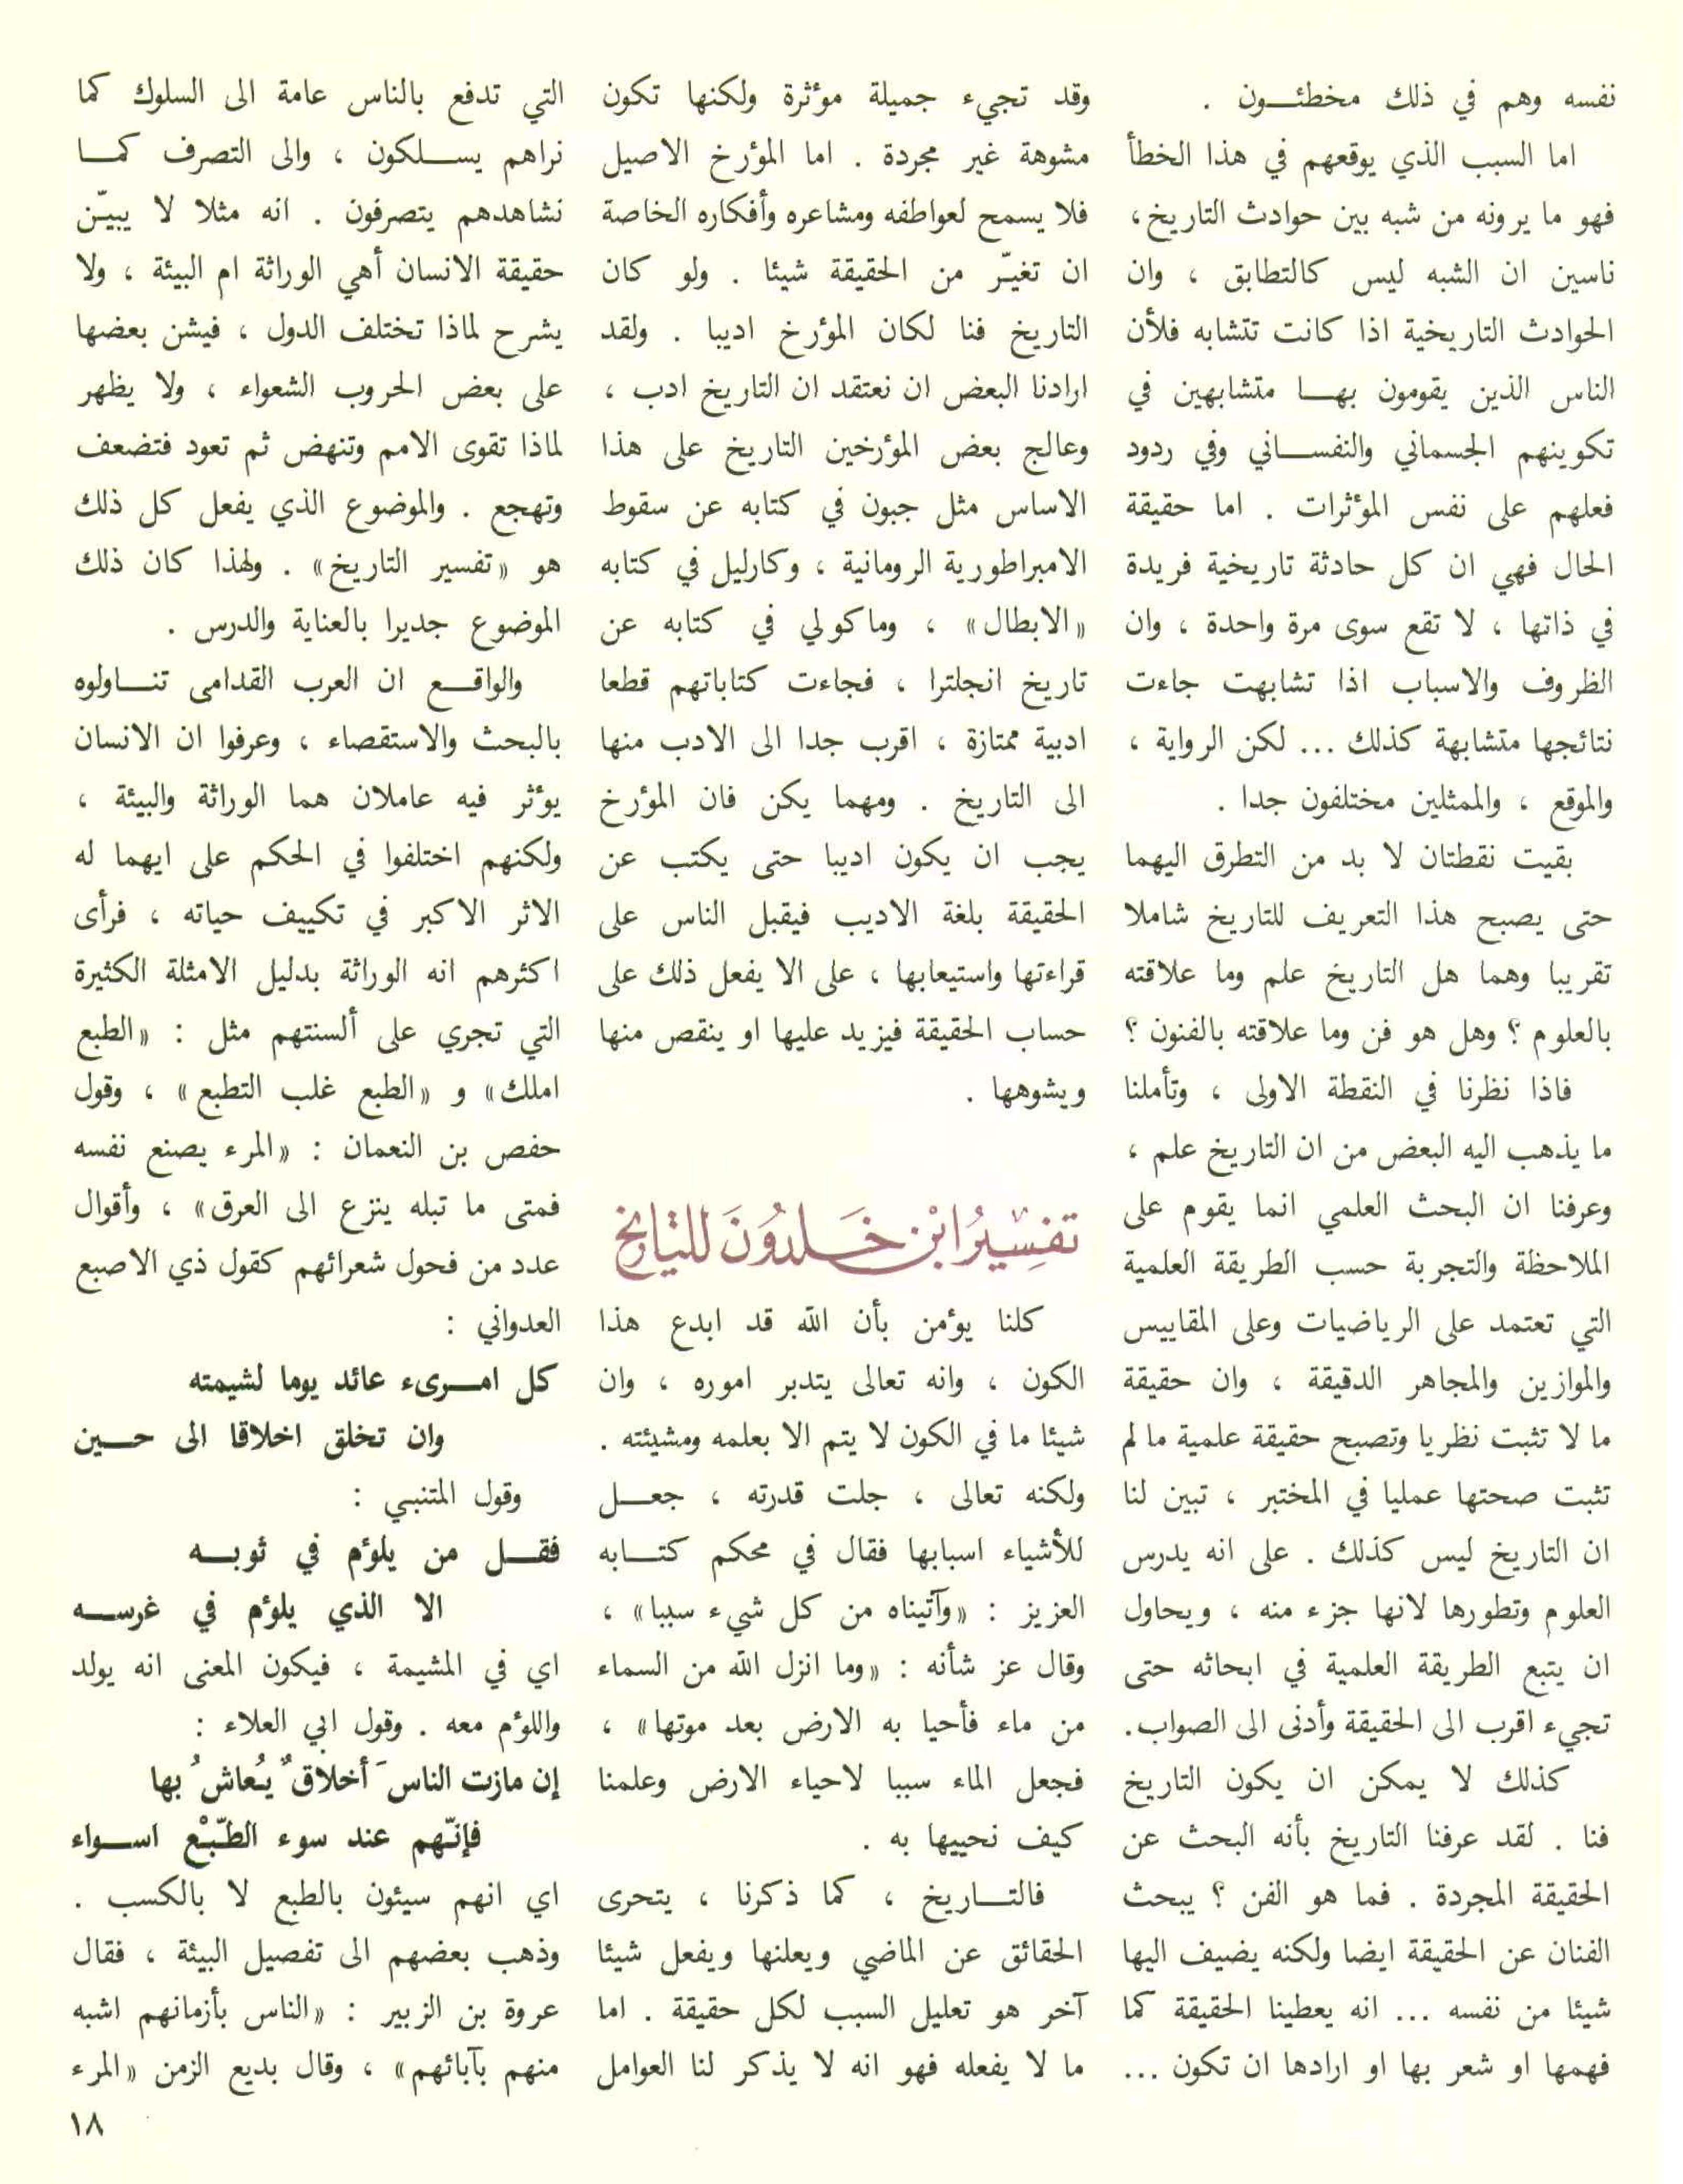 نفسه وهم في ذلك مخطئـــون .
اما السبب الذي يوقعهم في هذا الخطأ
فهو ما يرونه من شبه بين حوادث التاريخ،
ناسين ان الشبه ليس كالتطابق ، وان
الحوادث التاريخية اذا كانت تتشابه فلأن
الناس الذين يقومون بهــا متشابهين في
تكوينهم الجسماني والنفســاني وفي ردود
فعلهم على نفس المؤثرات . اما حقيقة
الحال فهي ان كل حادثة تاريخية فريدة
في ذاتها ، لا تقع سوى مرة واحدة ، وان
الظروف والاسباب اذا تشابهت جاءت
نتائجها متشابهة كذلك ... لكن الرواية ،
والموقع ، والممثلين مختلفون جدا .
بقيت نقطتان لا بد من التطرق اليهما
حتى يصبح هذا التعريف للتاريخ شاملا
تقريبا وهما هل التاريخ علم وما علاقته
بالعلوم ؟ وهل هو فن وما علاقته بالفنون ؟
فاذا نظرنا في النقطة الاولى ، وتأملنا
ما يذهب اليه البعض من ان التاريخ علم ،
وعرفنا ان البحث العلمي انما يقوم على
الملاحظة والتجربة حسب الطريقة العلمية
التي تعتمد على الرياضيات وعلى المقاييس
والموازين والمجاهر الدقيقة ، وان حقيقة
ما لا تثبت نظريا وتصبح حقيقة علمية ما لم
تثبت صحتها عمليا في المختبر ، تبين لنا
ان التاريخ ليس كذلك . على انه يدرس
العلوم وتطورها لانها جزء منه ، ويحاول
ان يتبع الطريقة العلمية في ابحاثه حتى
تجيء اقرب الى الحقيقة وأدنى الى الصواب.
كذلك لا يمكن ان يكون التاريخ
فنا . لقد عرفنا التاريخ بأنه البحث عن
الحقيقة المجردة . فما هو الفن ؟ يبحث
الفنان عن الحقيقة ايضا ولكنه يضيف اليها
شيئا من نفسه ... انه يعطينا الحقيقة كما
فهمها او شعر بها او ارادها ان تكون ...
وقد تجيء جميلة مؤثرة ولكنها تكون
مشوهة غير مجردة . اما المؤرخ الاصيل
فلا يسمح لعواطفه ومشاعره وأفكاره الخاصة
ان تغيّر من الحقيقة شيئا . ولو كان
التاريخ فنا لكان المؤرخ اديبا . ولقد
ارادنا البعض ان نعتقد ان التاريخ ادب ،
وعالج بعض المؤرخين التاريخ على هذا
الاساس مثل جبون في كتابه عن سقوط
الامبراطورية الرومانية ، وكارليل في كتابه
«الابطال» ، وماكولي في كتابه عن
تاريخ انجلترا ، فجاءت كتاباتهم قطعا
ادبية ممتازة ، اقرب جدا الى الادب منها
الى التاريخ . ومهما يكن فان المؤرخ
يجب ان يكون اديبا حتى يكتب عن
الحقيقة بلغة الاديب فيقبل الناس على
قراءتها واستيعابها ، على الا يفعل ذلك على
حساب الحقيقة فيزيد عليها او ينقص منها
ويشوهها .
تفسيرُ ابْن خَلدُونَ للتاريخ
كلنا يؤمن بأن الله قد ابدع هذا
الكون ، وانه تعالى يتدبر اموره ، وان
شيئا ما في الكون لا يتم الا بعلمه ومشيئته .
ولكنه تعالى ، جلت قدرته ، جعــل
للأشياء اسبابها فقال في محكم كتــابه
العزيز : «وآتيناه من كل شيء سببا» ،
وقال عز شأنه : «وما انزل الله من السماء
من ماء فأحيا به الارض بعد موتها» ،
فجعل الماء سببا لاحياء الارض وعلمنا
كيف نحييها به .
فالتــاريخ ، كما ذكرنا ، يتحرى
الحقائق عن الماضي ويعلنها ويفعل شيئا
آخر هو تعليل السبب لكل حقيقة . اما
ما لا يفعله فهو انه لا يذكر لنا العوامل
التي تدفع بالناس عامة الى السلوك كما
نراهم يســلكون ، والى التصرف كمــا
نشاهدهم يتصرفون . انه مثلا لا يبيّن
حقيقة الانسان أهي الوراثة ام البيئة ، ولا
يشرح لماذا تختلف الدول ، فيشن بعضها
على بعض الحروب الشعواء ، ولا يظهر
لماذا تقوى الامم وتنهض ثم تعود فتضعف
وتهجع . والموضوع الذي يفعل كل ذلك
هو «تفسير التاريخ» . ولهذا كان ذلك
الموضوع جديرا بالعناية والدرس .
والواقــع ان العرب القدامى تنــاولوه
بالبحث والاستقصاء ، وعرفوا ان الانسان
يؤثر فيه عاملان هما الوراثة والبيئة ،
ولكنهم اختلفوا في الحكم على ايهما له
الاثر الاكبر في تكييف حياته ، فرأى
اكثرهم انه الوراثة بدليل الامثلة الكثيرة
التي تجري على ألسنتهم مثل : «الطبع
املك» و «الطبع غلب التطبع» ، وقول
حفص بن النعمان : «المرء يصنع نفسه
فمتى ما تبله ينزع الى العرق» ، وأقوال
عدد من فحول شعرائهم كقول ذي الاصبع
العدواني :
كل امــرىء عائد يوما لشيمته
وان تخلق اخلاقا الى حــين
وقول المتنبي :
فقــل من يلؤم في ثوبــه
الا الذي يلؤم في غرســه
اي في المشيمة ، فيكون المعنى انه يولد
واللؤم معه . وقول ابي العلاء :
إن مازت الناسَ أخلاقٌ يُعاشُ بها
فإنّهم عند سوء الطّبْع اســواء
اي انهم سيئون بالطبع لا بالكسب .
وذهب بعضهم الى تفصيل البيئة ، فقال
عروة بن الزبير : «الناس بأزمانهم اشبه
منهم بآبائهم» ، وقال بديع الزمن «المرء
١٨